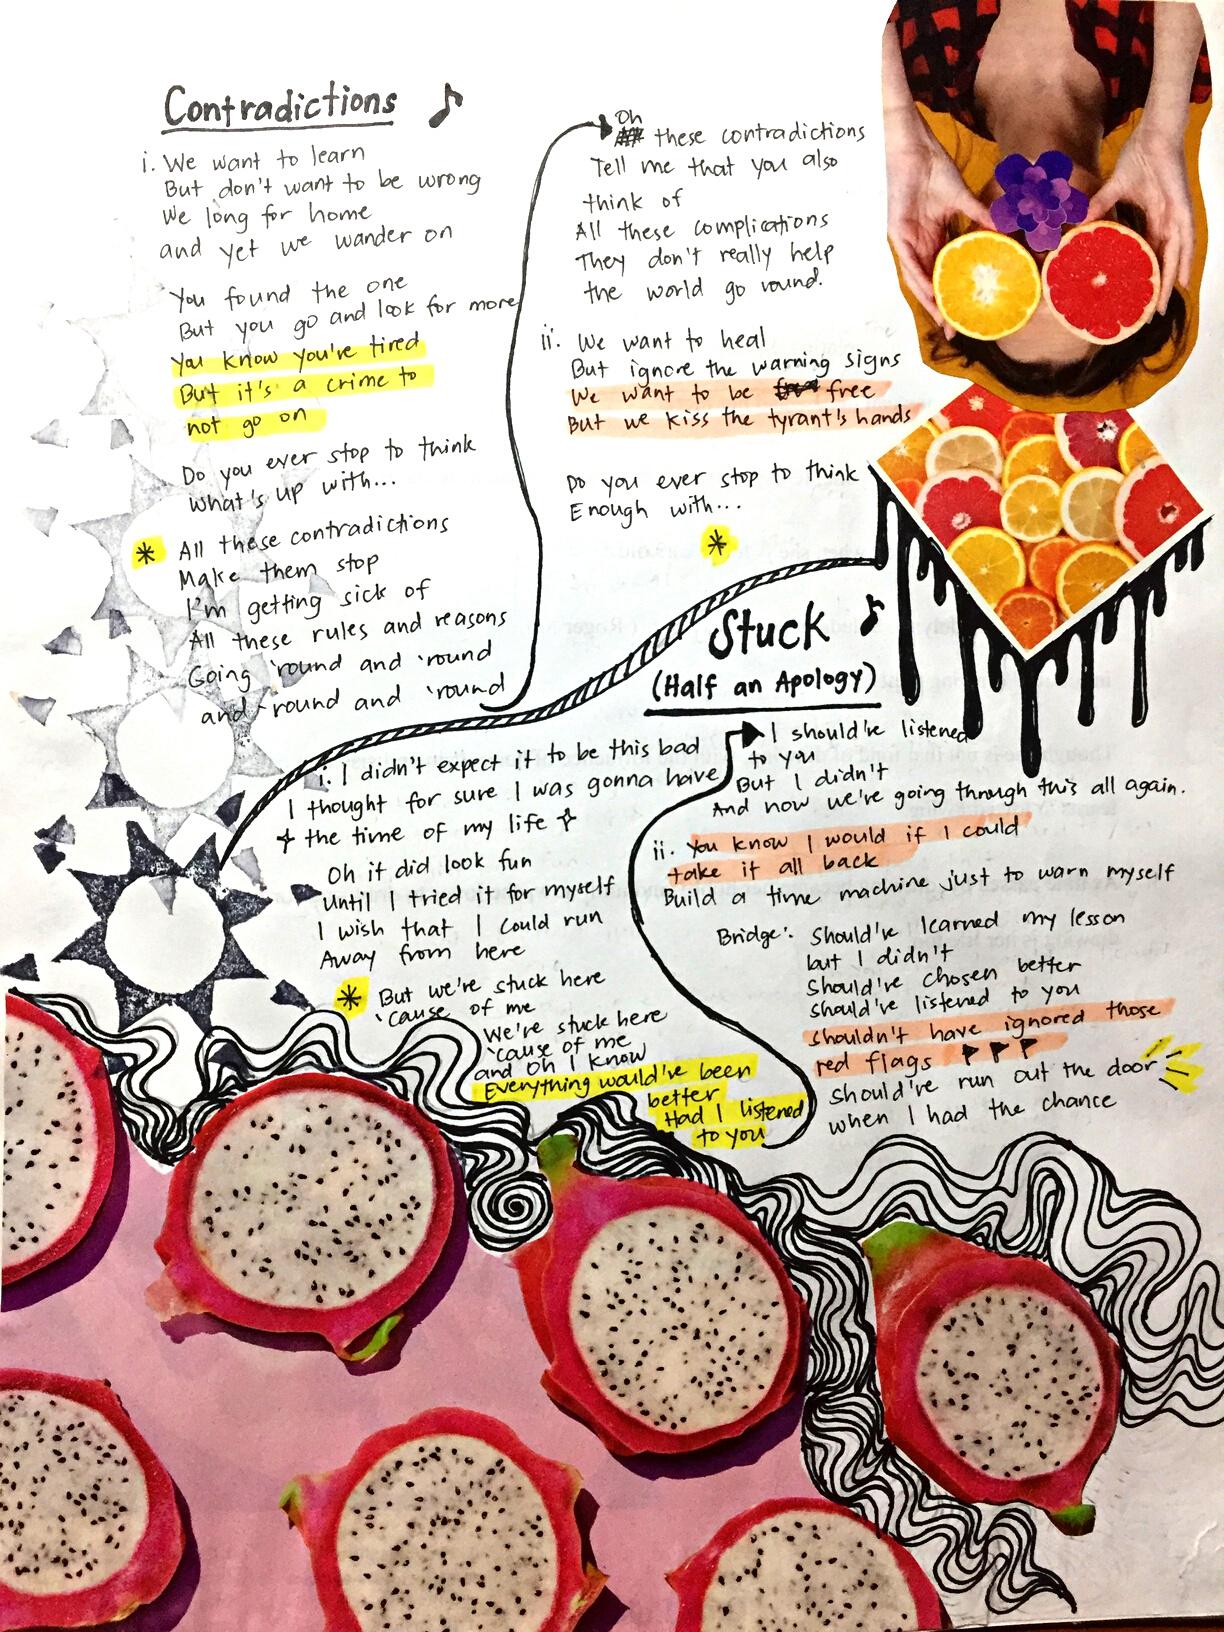 Contradictions
i. We want to learn
But don't want to be wrong
We long for home
and yet we wander on
You found the one
But you go and look for more
You know you're tired
But it's a crime to
not go on
Do you ever stop to think
What's up with...
* All these contradictions
Make them stop
I'm getting sick of
All these rules and reasons
Going 'round and 'round
and 'round and 'round
Oh
these contradictions
Tell me that you also
think of
All these complications
They don't really help
the world go round.
ii. We want to heal
But ignore the warning signs
We want to be free
But we kiss the tyrant's hands
Do you ever stop to think
Enough with...
*
Stuck
(Half an Apology)
i. I didn't expect it to be this bad
I thought for sure I was gonna have
the time of my life
Oh it did look fun
Until I tried it for myself
I wish that I could run
Away from here
* But we're stuck here
'cause of me
We're stuck here
'cause of me
and oh I know
Everything would've been
better
Had I listened
to you
I should've listened
to you
But I didn't
And now we're going through this all again.
ii. You know I would if I could
take it all back
Build a time machine just to warn myself
Bridge: Should've learned my lesson
but I didn't
Should've chosen better
Should've listened to you
Shouldn't have ignored those
red flags
Should've run out the door
when I had the chance